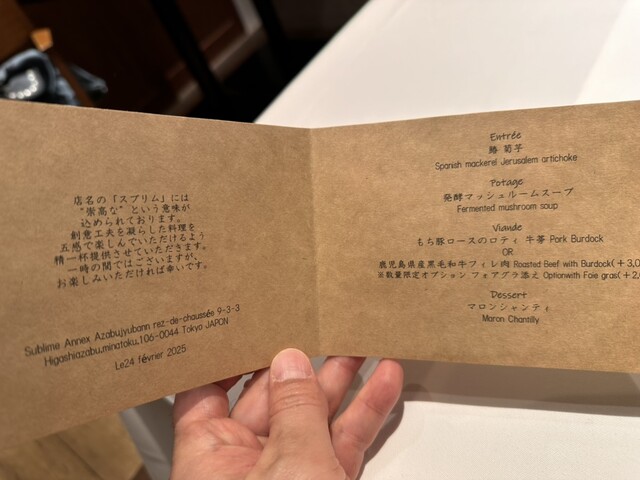 店名の「スブリム」には
“崇高な”という意味が
込められております。
創意工夫を凝らした料理を
五感で楽しんでいただけるよう
精一杯提供させていただきます。
一時の間ではございますが、
お楽しみいただければ幸いです。
Sublime Annex Azabujyubann rez-de-chaussée 9-3-3
Higashiazabu,minatoku,106-0044 Tokyo JAPON
Le24 février 2025
Entrée
鰆 菊芋
Spanish mackerel Jerusalem artichoke
Potage
発酵マッシュルームスープ
Fermented mushroom soup
Viande
もち豚ロースのロティ 牛蒡 Pork Burdock
OR
鹿児島県産黒毛和牛フィレ肉 Roasted Beef with Burdock(+3,0
※数量限定オプション フォアグラ添え Optionwith Foie gras(+2,
Dessert
マロンシャンティ
Maron Chantilly